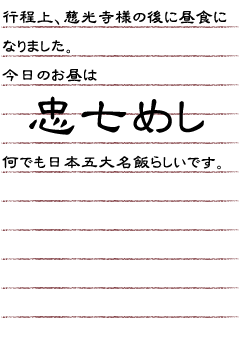 行程上、慈光寺様の後に昼食に
なりました。
今日のお昼は
忠七めし
何でも日本五大名飯らしいです。